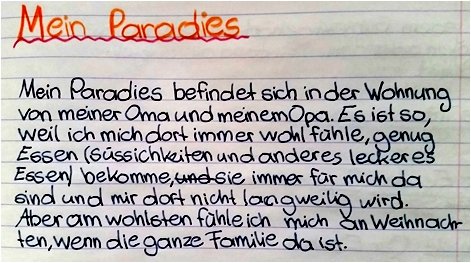 Mein Paradies
Mein Paradies befindet sich in der Wohnung
von meiner Oma und meinem Opa. Es ist so,
weil ich mich dort immer wohl fühle, genug
Essen (Süssichkeiten und anderes leckeres
Essen) bekomme, und sie immer für mich da
sind und mir dort nicht langweilig wird.
Aber am wohlsten fühle ich mich an Weihnach-
ten, wenn die ganze Familie da ist.